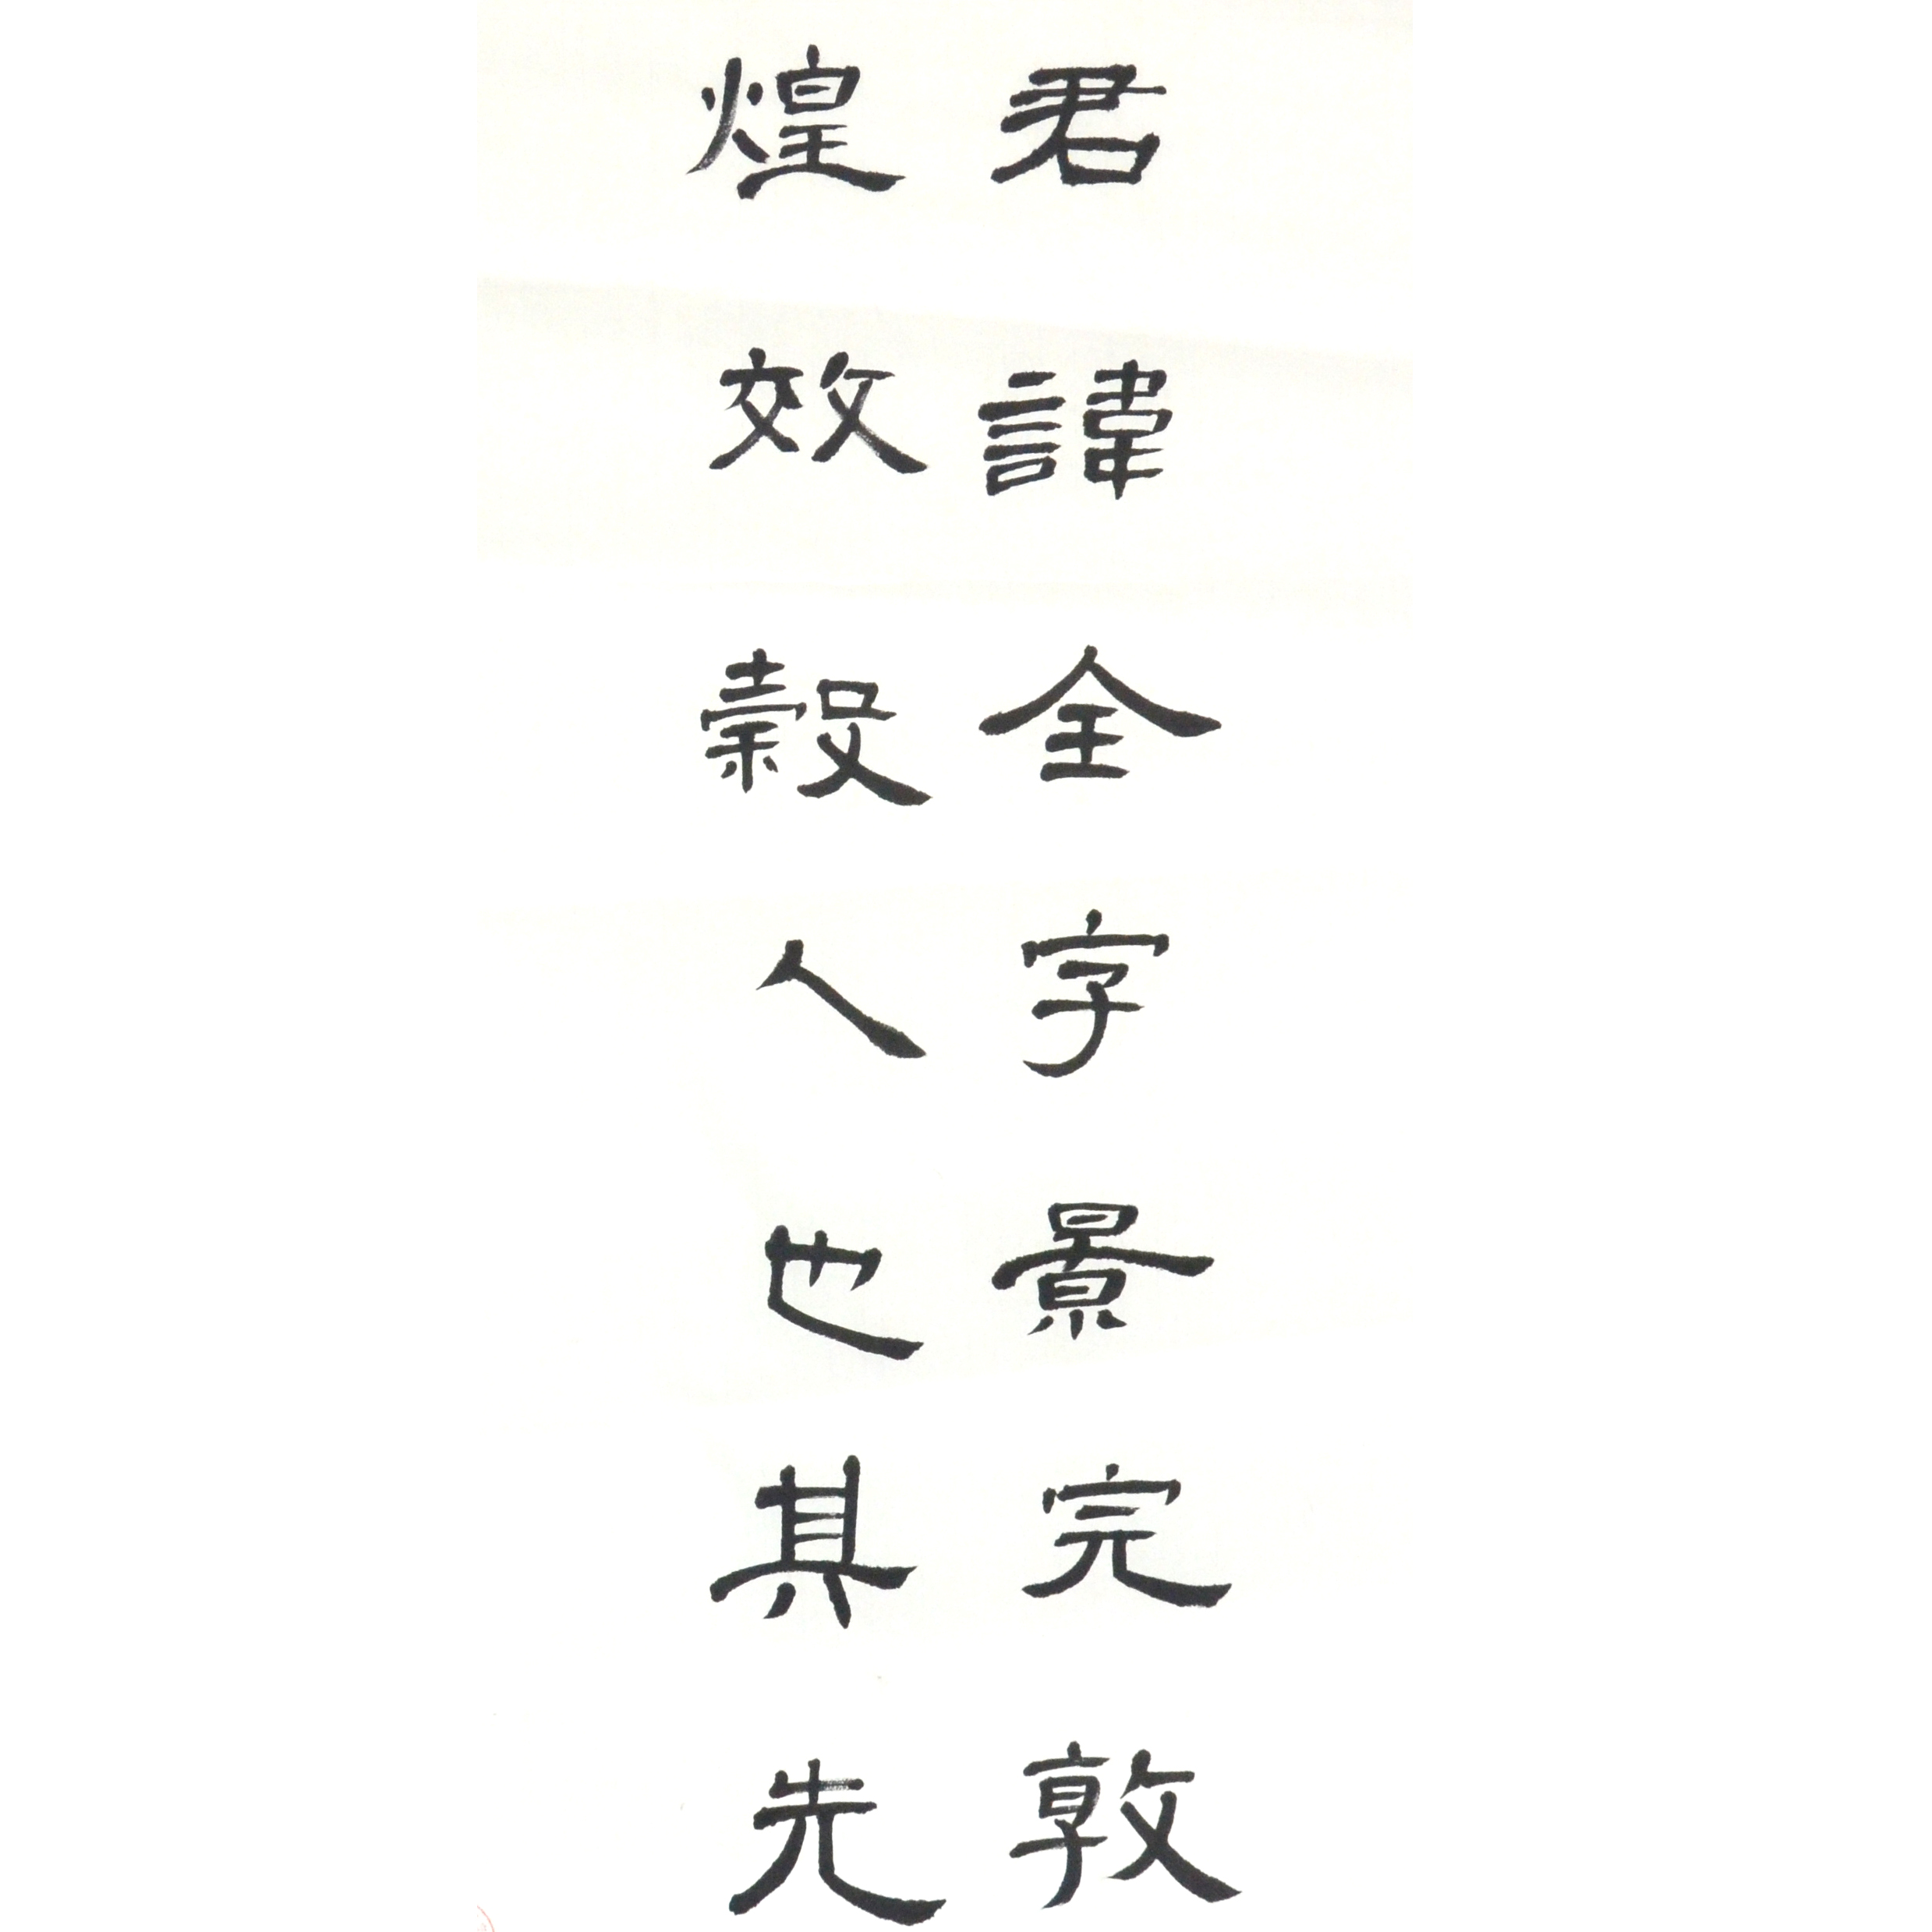 君諱全字景完敦
煌效穀人也其先